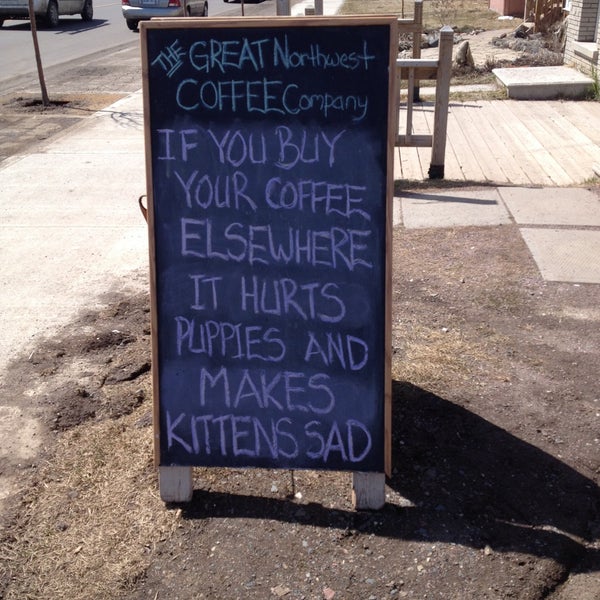 THE GREAT Northwest
COFFEE Company
IF YOU BUY
YOUR COFFEE
ELSEWHERE
IT HURTS
PUPPIES AND
MAKES
KITTENS SAD